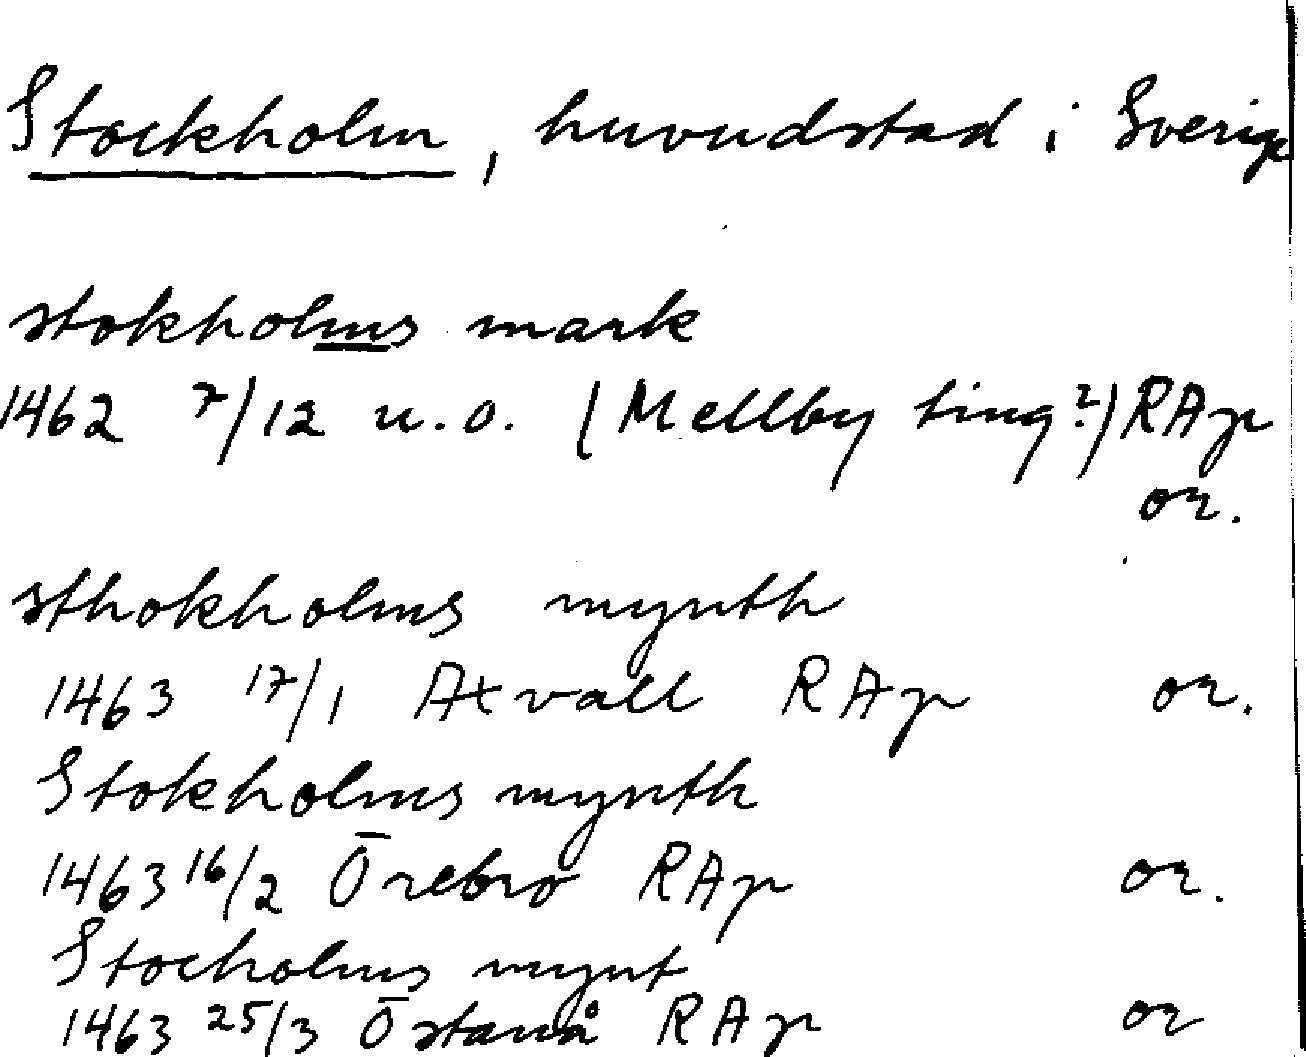 Stockholm, huvudstad i Sverige
stokholms mark
1462 7/12 u.o. (Mellby ting?) RAp
or.
sthokholms mynth
1463 17/1 Axvall RAp or.
Stokholms mynth
1463 16/2 Örebro RAp or.
Stocholms mynt
1463 25/3 Östanå RAp or